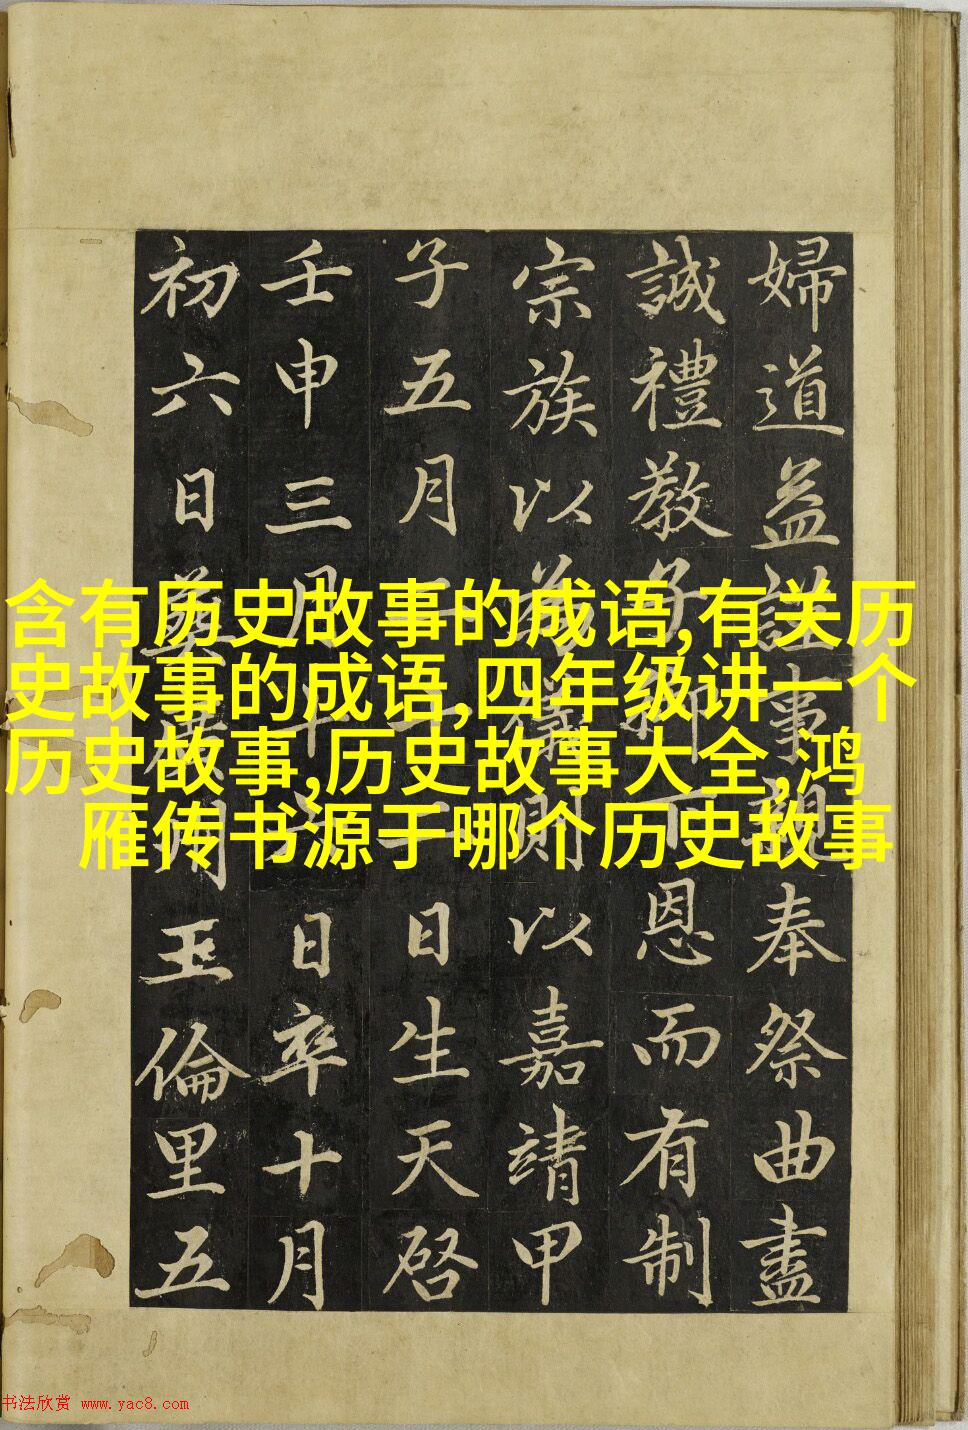 婦道益謹事親奉祭曲盡
誠禮教子御下恩而有制
宗族以為儀則以嘉靖甲
子五月日生天啓
壬申三月十日卒十月
初六日葬玉倫里五
含有历史故事的成语,有关历
史故事的成语,四年级讲一个
历史故事,历史故事大全,鸿
雁传书源于哪个历史故事
书法欣赏 www.yac8.com